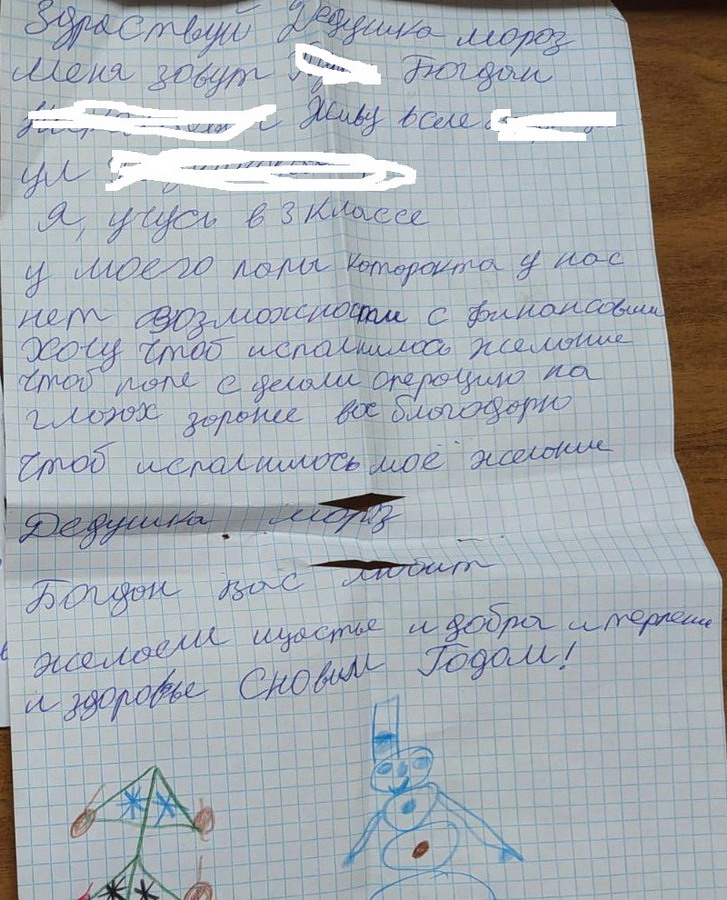 Здраствуй Дедушка мороз
Меня зовут Богдан
Живу в селе
ул
Я, учусь в 3 классе
у моего папы каторокта у нас
нет возможностпи с финансовыи
хочу чтоб испалнилось желание
чтоб папе сделали операцию на
глозох зоронее вас благодорю
чтоб испалнилось моё желание
Дедушка мороз
Богдан вас любит
желаем щастье и добра и терпени
и здоровье Сновым Годом!